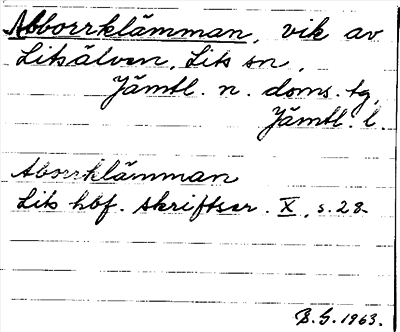 Abborrklämman, vik av
Litsälven, Lits sn,
Jämtl. n. doms. tg,
Jämtl. l.
Aborrklämman
Lits hbf. skriftser. X, s. 28.
B. G. 1963.